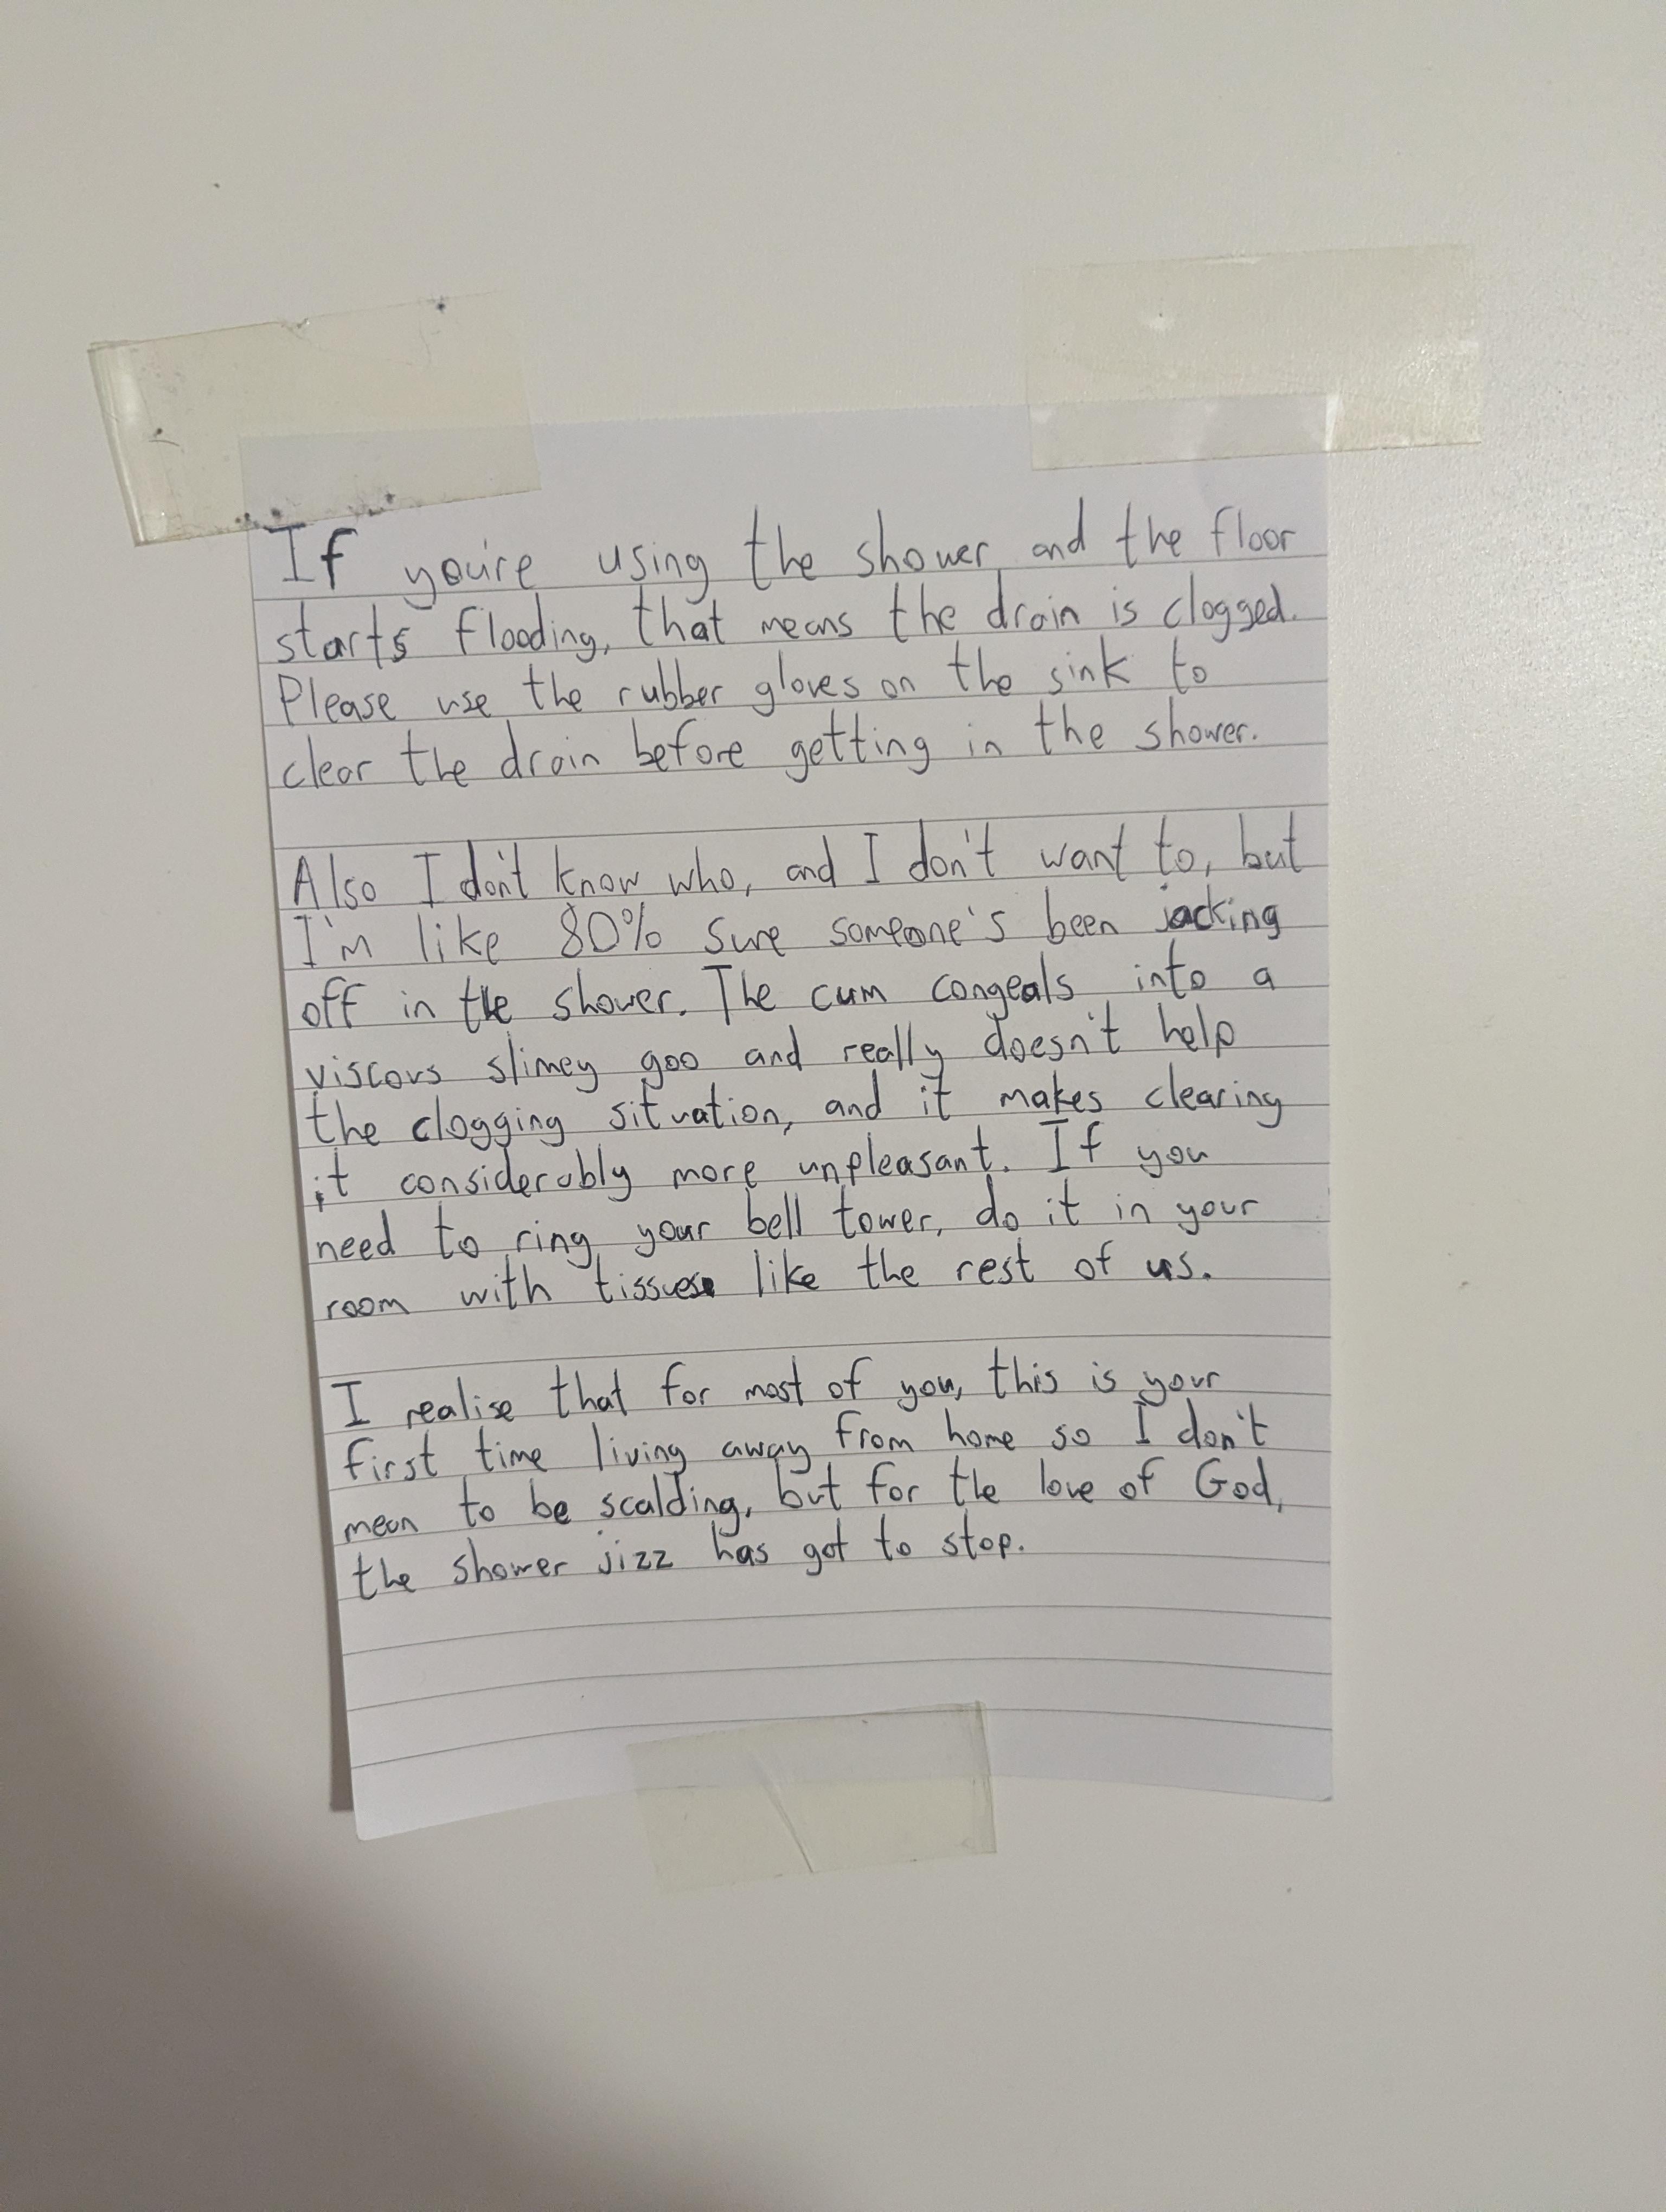 If you're using the shower and the floor
starts flooding, that means the drain is clogged.
Please use the rubber gloves on the sink to
clear the drain before getting in the shower.
Also I don't know who, and I don't want to, but
I'm like 80% sure someone's been jacking
off in the shower. The cum congeals into a
viscous slimey goo and really doesn't help
the clogging situation, and it makes clearing
it considerably more unpleasant. If you
need to ring your bell tower, do it in your
room with tissues like the rest of us.
I realise that for most of you, this is your
first time living away from home so I don't
mean to be scalding, but for the love of God,
the shower jizz has got to stop.